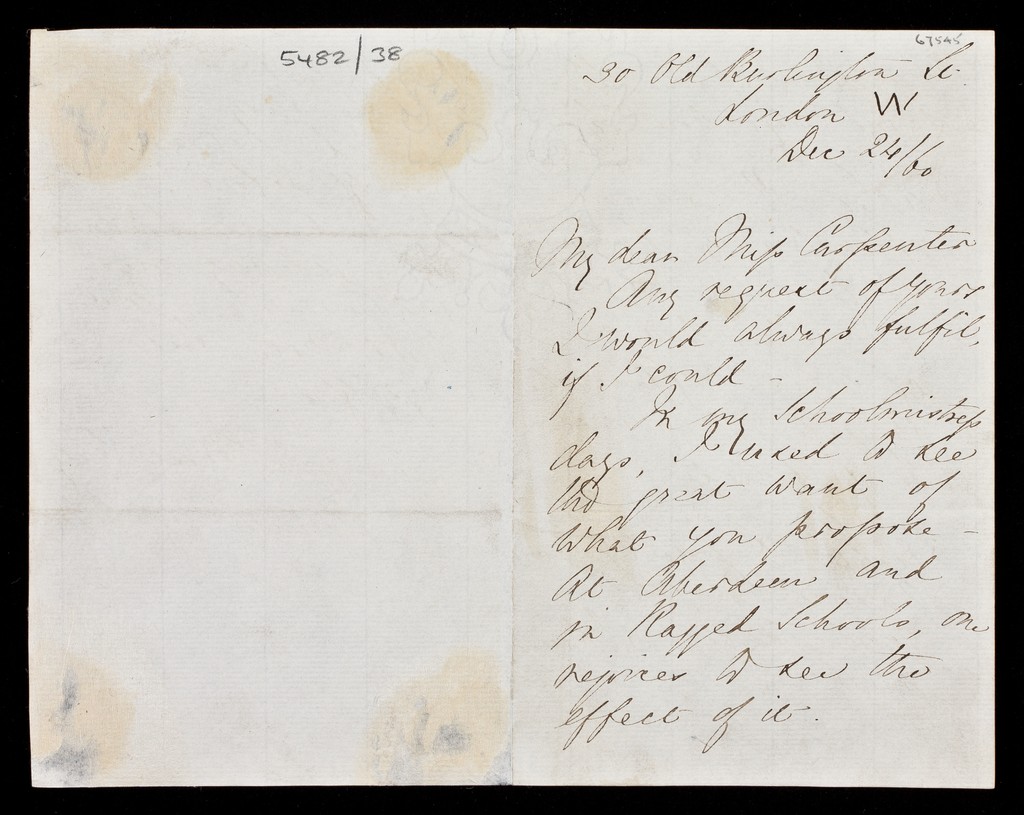 5482/38
67545
30 Old Burlington St.
London W
Dec 24/60
My dear Miss Carpenter
Any request of yours
I would always fulfil,
if I could -
In my Schoolmistress
days, I used to see
the great want of
what you propose -
At Aberdeen and
in Ragged Schools, one
rejoices to see the
effect of it.